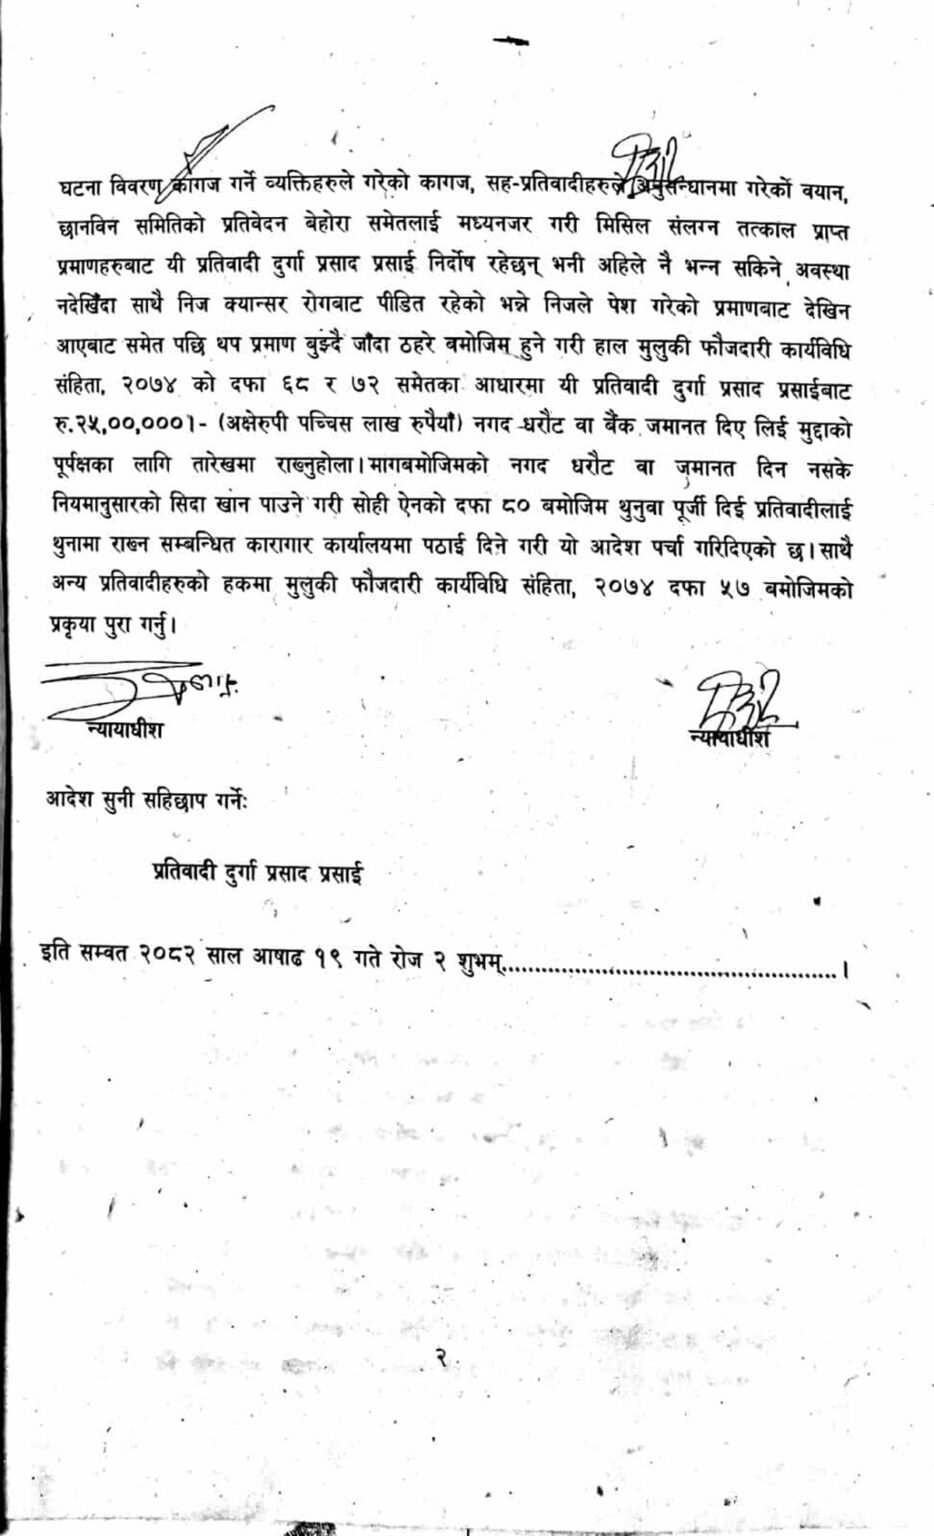 घटना विवरण कागज गर्ने व्यक्तिहरुले गरेको कागज, सह-प्रतिवादीहरुले अनुसन्धानमा गरेको बयान,
छानविन समितिको प्रतिवेदन बेहोरा समेतलाई मध्यनजर गरी मिसिल संलग्न तत्काल प्राप्त
प्रमाणहरुबाट यी प्रतिवादी दुर्गा प्रसाद प्रसाई निर्दोष रहेछन् भनी अहिले नै भन्न सकिने अवस्था
नदेखिँदा साथै निज क्यान्सर रोगबाट पीडित रहेको भन्ने निजले पेश गरेको प्रमाणबाट देखिन
आएबाट समेत पछि थप प्रमाण बुझ्दै जाँदा ठहरे बमोजिम हुने गरी हाल मुलुकी फौजदारी कार्यविधि
संहिता, २०७४ को दफा ६८ र ७२ समेतका आधारमा यी प्रतिवादी दुर्गा प्रसाद प्रसाईबाट
रु.२५,००,०००।- (अक्षेरुपी पच्चिस लाख रुपैयाँ) नगद धरौट वा बैंक जमानत दिए लिई मुद्दाको
पूर्पक्षका लागि तारेखमा राख्नुहोला। मागबमोजिमको नगद धरौट वा जमानत दिन नसके
नियमानुसारको सिदा खान पाउने गरी सोही ऐनको दफा ८० बमोजिम थुनुवा पूर्जी दिई प्रतिवादीलाई
थुनामा राख्न सम्बन्धित कारागार कार्यालयमा पठाई दिने गरी यो आदेश पर्चा गरिदिएको छ। साथै
अन्य प्रतिवादीहरुको हकमा मुलुकी फौजदारी कार्यविधि संहिता, २०७४ दफा ५७ बमोजिमको
प्रकृया पुरा गर्नु।
न्यायाधीश
न्यायाधीश
आदेश सुनी सहिछाप गर्नेः
प्रतिवादी दुर्गा प्रसाद प्रसाई
इति सम्वत २०८२ साल आषाढ १९ गते रोज २ शुभम्..................................................।
२